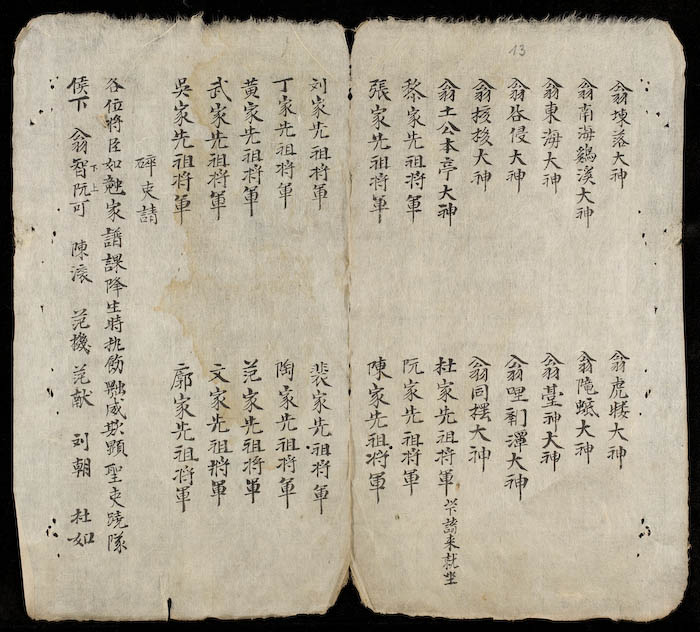 13
翁埬落大神 翁虎大神
翁南海鷄溪大神 翁陁大神
翁東海大神 翁臺神大神
翁谷侵大神 翁哩潭大神
翁核梭大神 翁同擺大神
翁土公本亭大神 杜家先祖將軍 請来就坐
黎家先祖將軍 阮家先祖將軍
張家先祖將軍 陳家先祖將軍
刘家先祖將軍 裴家先祖將軍
丁家先祖將軍 陶家先祖將軍
黄家先祖將軍 范家先祖將軍
武家先祖將軍 文家先祖將軍
吳家先祖將軍 廓家先祖將軍
碎吏請
各位將臣如家譜課降生時威顯聖吏隊
侯下 翁智阮可 下上 陳滾 范機 范献 刘朝 杜如